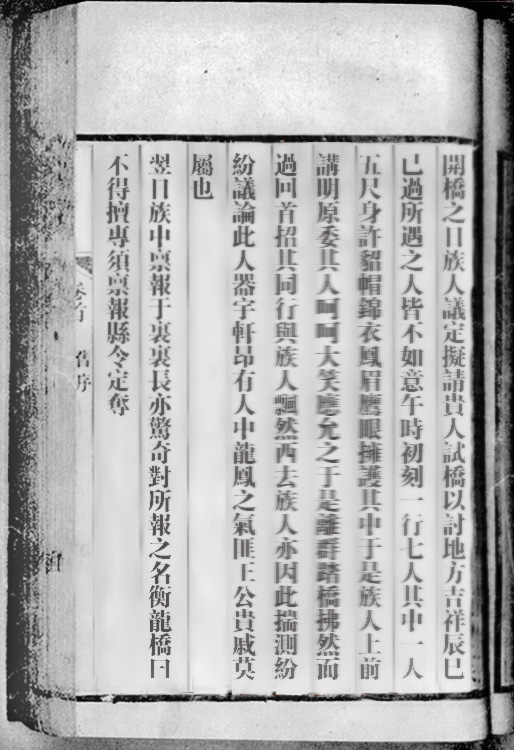 開橋之日族人議定擬請貴人試橋以討地方吉祥辰巳
已過所遇之人皆不如意午時初刻一行七人其中一人
五尺身許貂帽錦衣鳳眉鷹眼擁護其中于是族人上前
講明原委其人呵呵大笑應允之于是離群踏橋拂然而
過回首招其同行與族人飄然西去族人亦因此揣測紛
紛議論此人器宇軒昂有人中龍鳳之氣匪王公貴戚莫
屬也
翌日族中禀報于裏裏長亦驚奇對所報之名衡龍橋曰
不得擅專須禀報縣令定奪
卷首 舊序